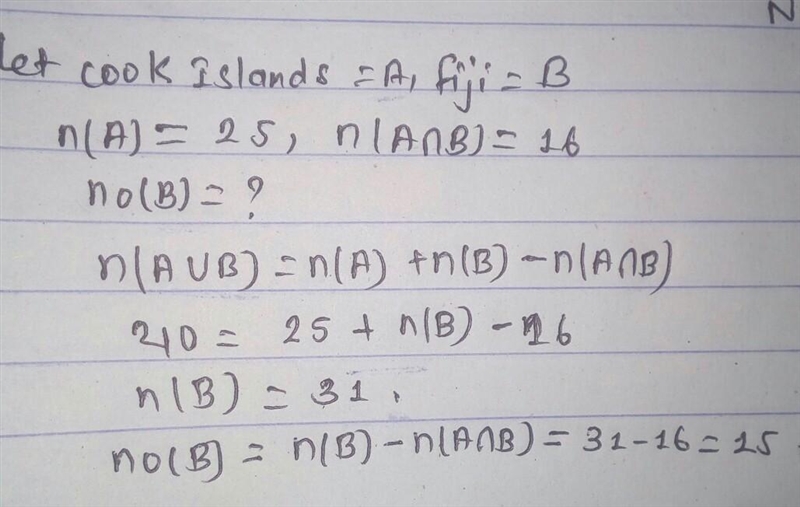 Let cook Islands = A, fiji = B
n(A) = 25, n(A∩B) = 16
no(B) = ?
n(A∪B) = n(A) + n(B) - n(A∩B)
40 = 25 + n(B) - 16
n(B) = 31.
no(B) = n(B) - n(A∩B) = 31 - 16 = 15